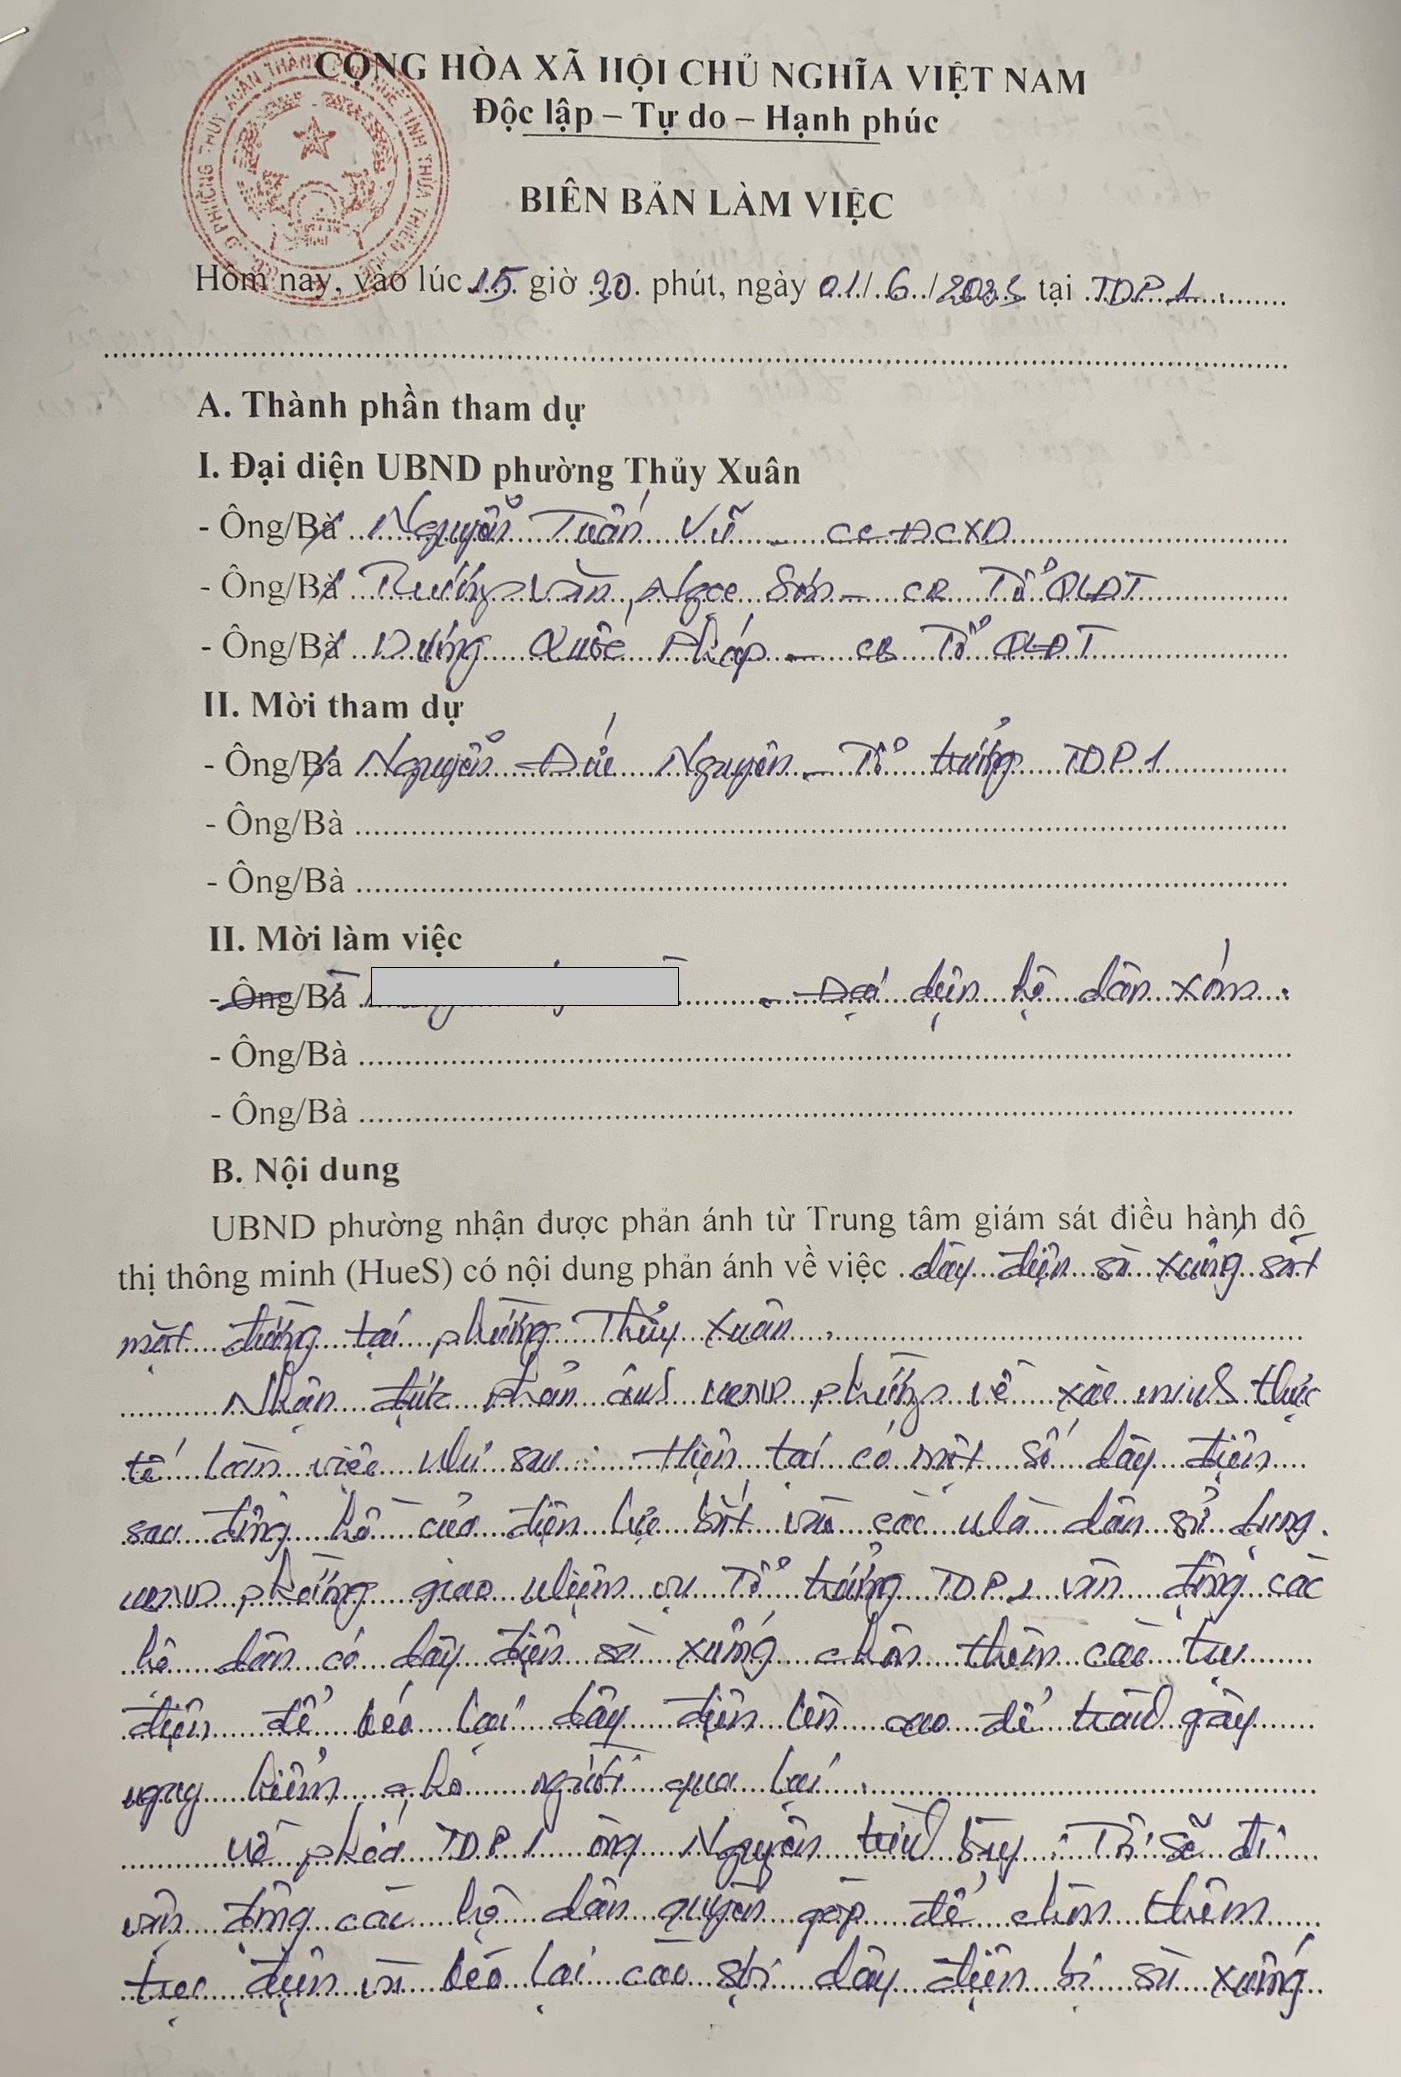 CỘNG HÒA XÃ HỘI CHỦ NGHĨA VIỆT NAM
Độc lập – Tự do – Hạnh phúc
BIÊN BẢN LÀM VIỆC
Hôm nay, vào lúc 15 giờ 30 phút, ngày 01/6/2023 tại TDP1
A. Thành phần tham dự
I. Đại diện UBND phường Thủy Xuân
- Ông/Bà Nguyễn Tuấn Vũ - CC ĐCXD
- Ông/Bà Trương Văn Ngọc Sơn - CB Tổ QLĐT
- Ông/Bà Dương Quốc Pháp - CB Tổ QLĐT
II. Mời tham dự
- Ông/Bà Nguyễn Đức Nguyên - Tổ trưởng TDP1
- Ông/Bà
- Ông/Bà
II. Mời làm việc
- Ông/Bà - Đại diện hộ dân xóm.
- Ông/Bà
- Ông/Bà
B. Nội dung
UBND phường nhận được phản ánh từ Trung tâm giám sát điều hành đô
thị thông minh (HueS) có nội dung phản ánh về việc dây điện sà xuống sát
mặt đường tại phường Thủy Xuân.
Nhận được phản ánh UBND phường về xác minh thực
tế làm việc như sau: Hiện tại có một số dây điện
sau đồng hồ của điện lực bắt vào các nhà dân sử dụng.
UBND phường giao nhiệm vụ Tổ trưởng TDP1 vận động các
hộ dân có dây điện sà xuống chôn thêm các trụ
điện để kéo lại dây điện lên cao để tránh gây
nguy hiểm cho người qua lại.
Về phía TDP1 ông Nguyên trình bày: Tôi sẽ đi
vận động các hộ dân quyên góp để chôn thêm
trụ điện và kéo lại các sợi dây điện bị sà xuống